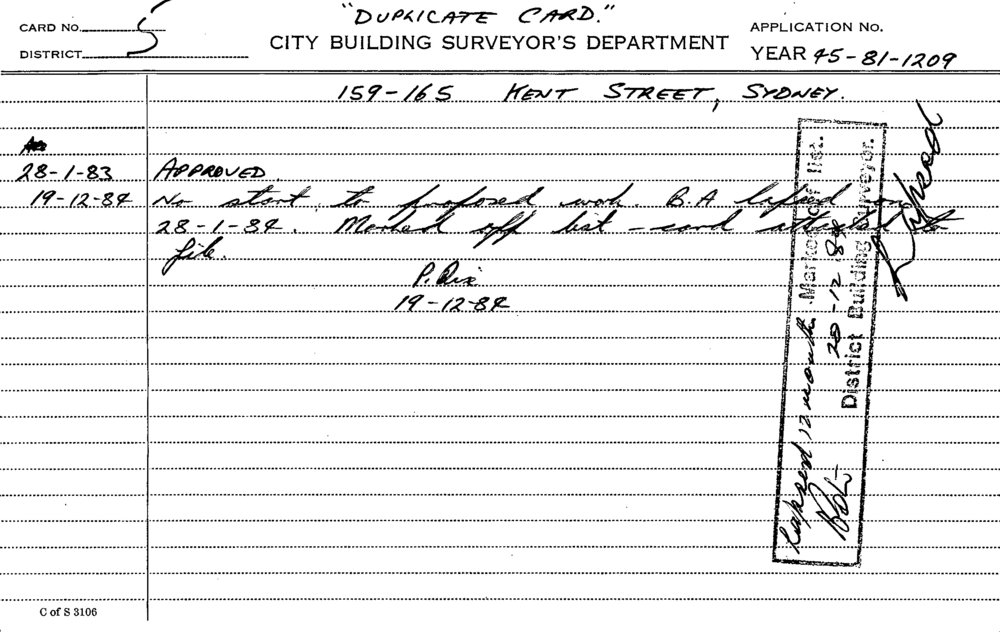 "DUPLICATE CARD."
CARD No. 5
DISTRICT
CITY BUILDING SURVEYOR'S DEPARTMENT
APPLICATION No.
YEAR 45-81-1209
159-165 KENT STREET, SYDNEY.
28-1-83 APPROVED.
19-12-84 No start to proposed work. B.A lapsed on
28-1-84. Marked off list - card attached to
file.
P. Rix
19-12-84
Lapsed 12 months Marked off list.
20-12-84
District Building Surveyor.
Lapsed
C of S 3106